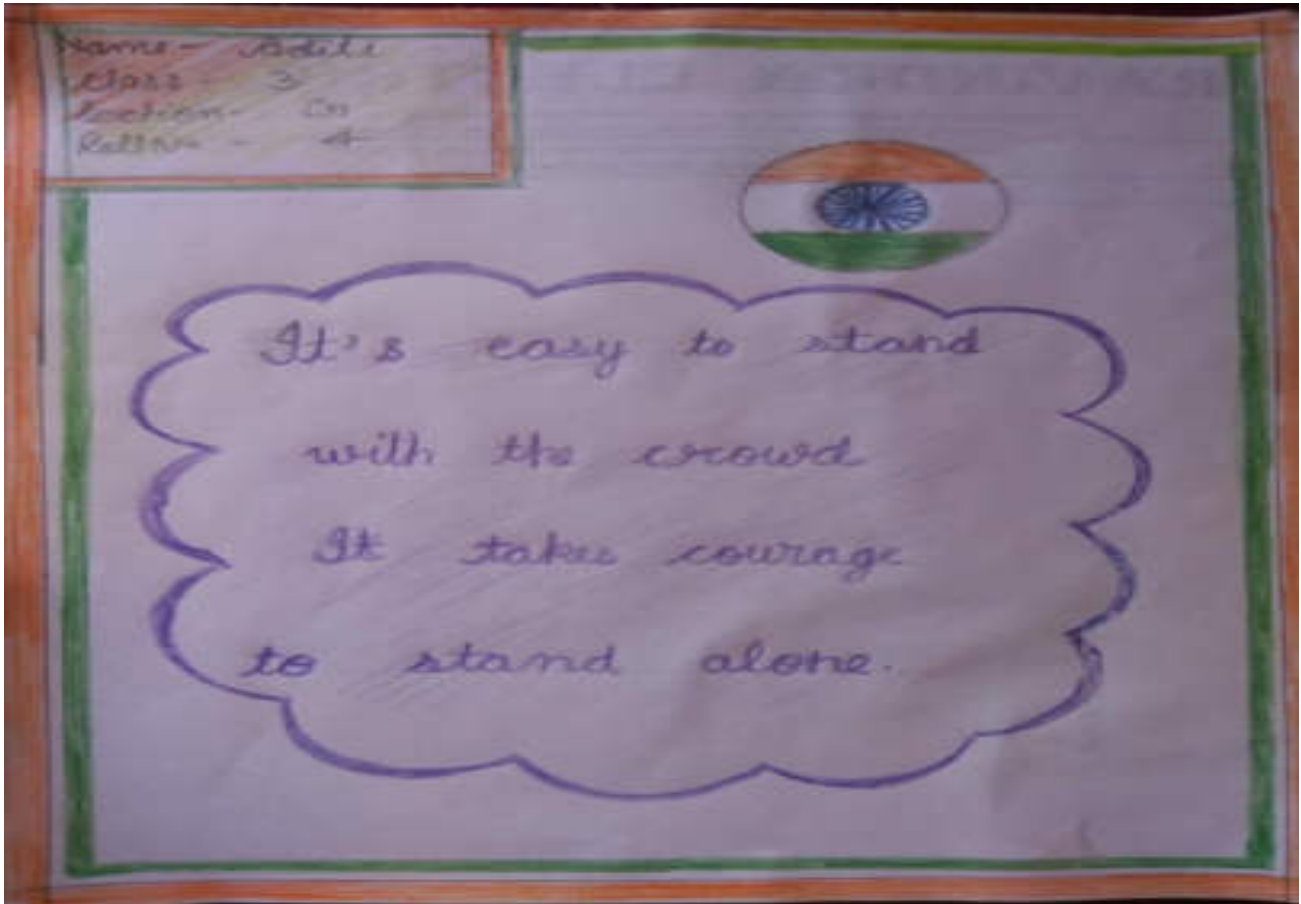 Name - Aditi
Class - 3
Section -
Roll No - 4
It's easy to stand
with the crowd
It takes courage
to stand alone.